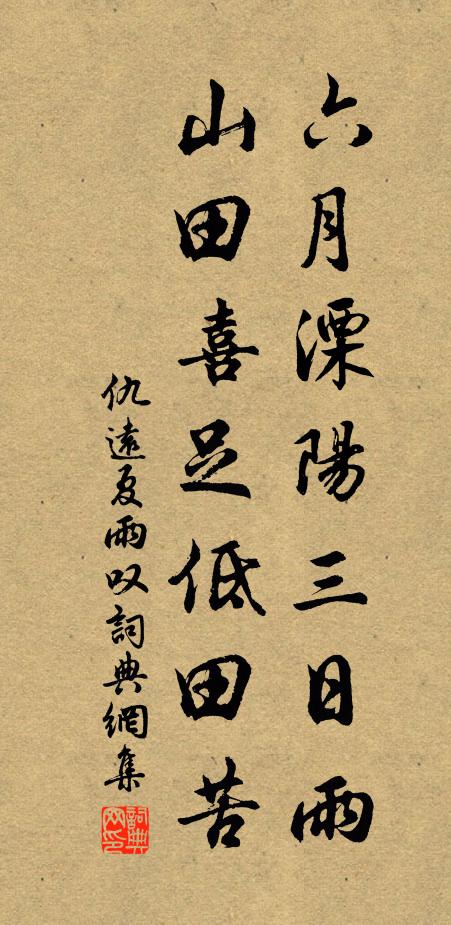 六月溧陽三日雨
山田喜足低田苦
仇遠夏雨叹詞典網集
詞典網印